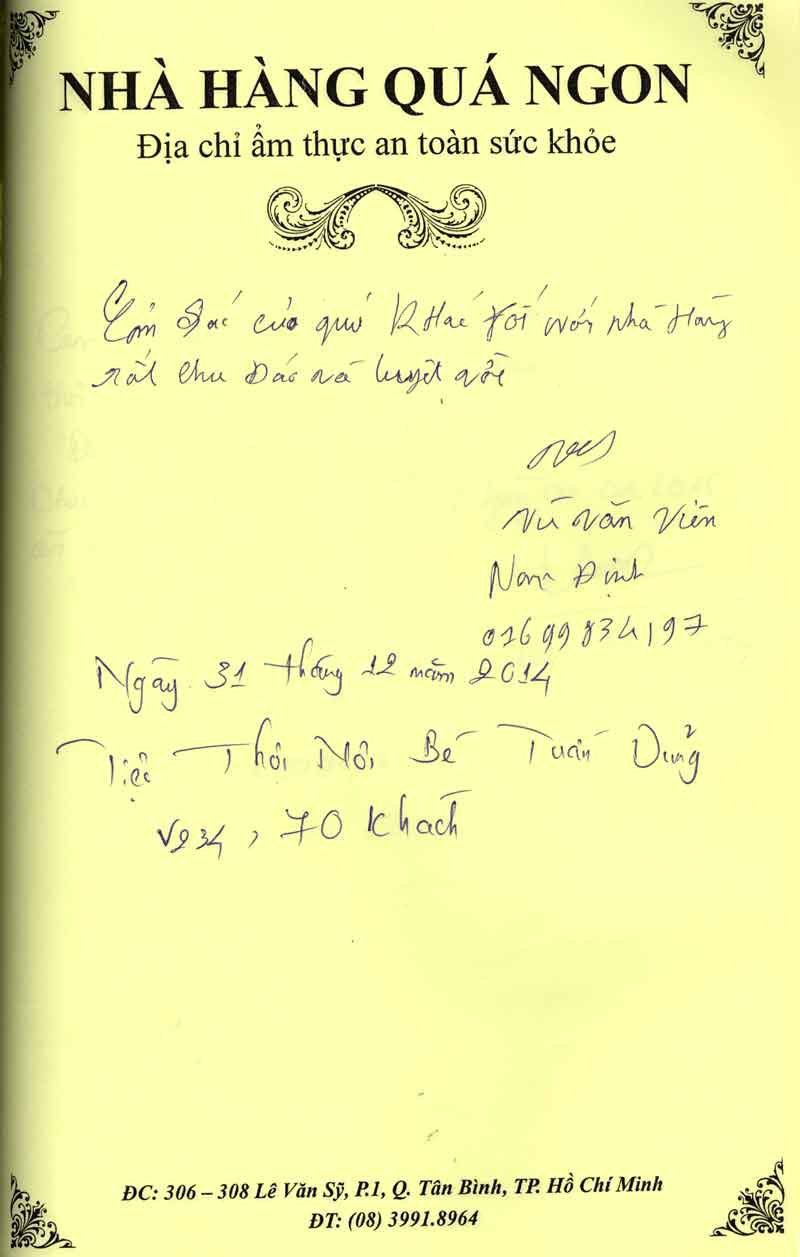 NHÀ HÀNG QUÁ NGON
Địa chỉ ẩm thực an toàn sức khỏe
Cảm giác của quý khác đối với nhà Hàng
rất chu Đáo và tuyệt vời
Vũ Văn Viên
Nam Định
01699834197
Ngày 31 tháng 12 năm 2014
Tiệc Thôi Nôi Bé Tuấn Dũng
V234, 70 khách
ĐC: 306 – 308 Lê Văn Sỹ, P.1, Q. Tân Bình, TP. Hồ Chí Minh
ĐT: (08) 3991.8964